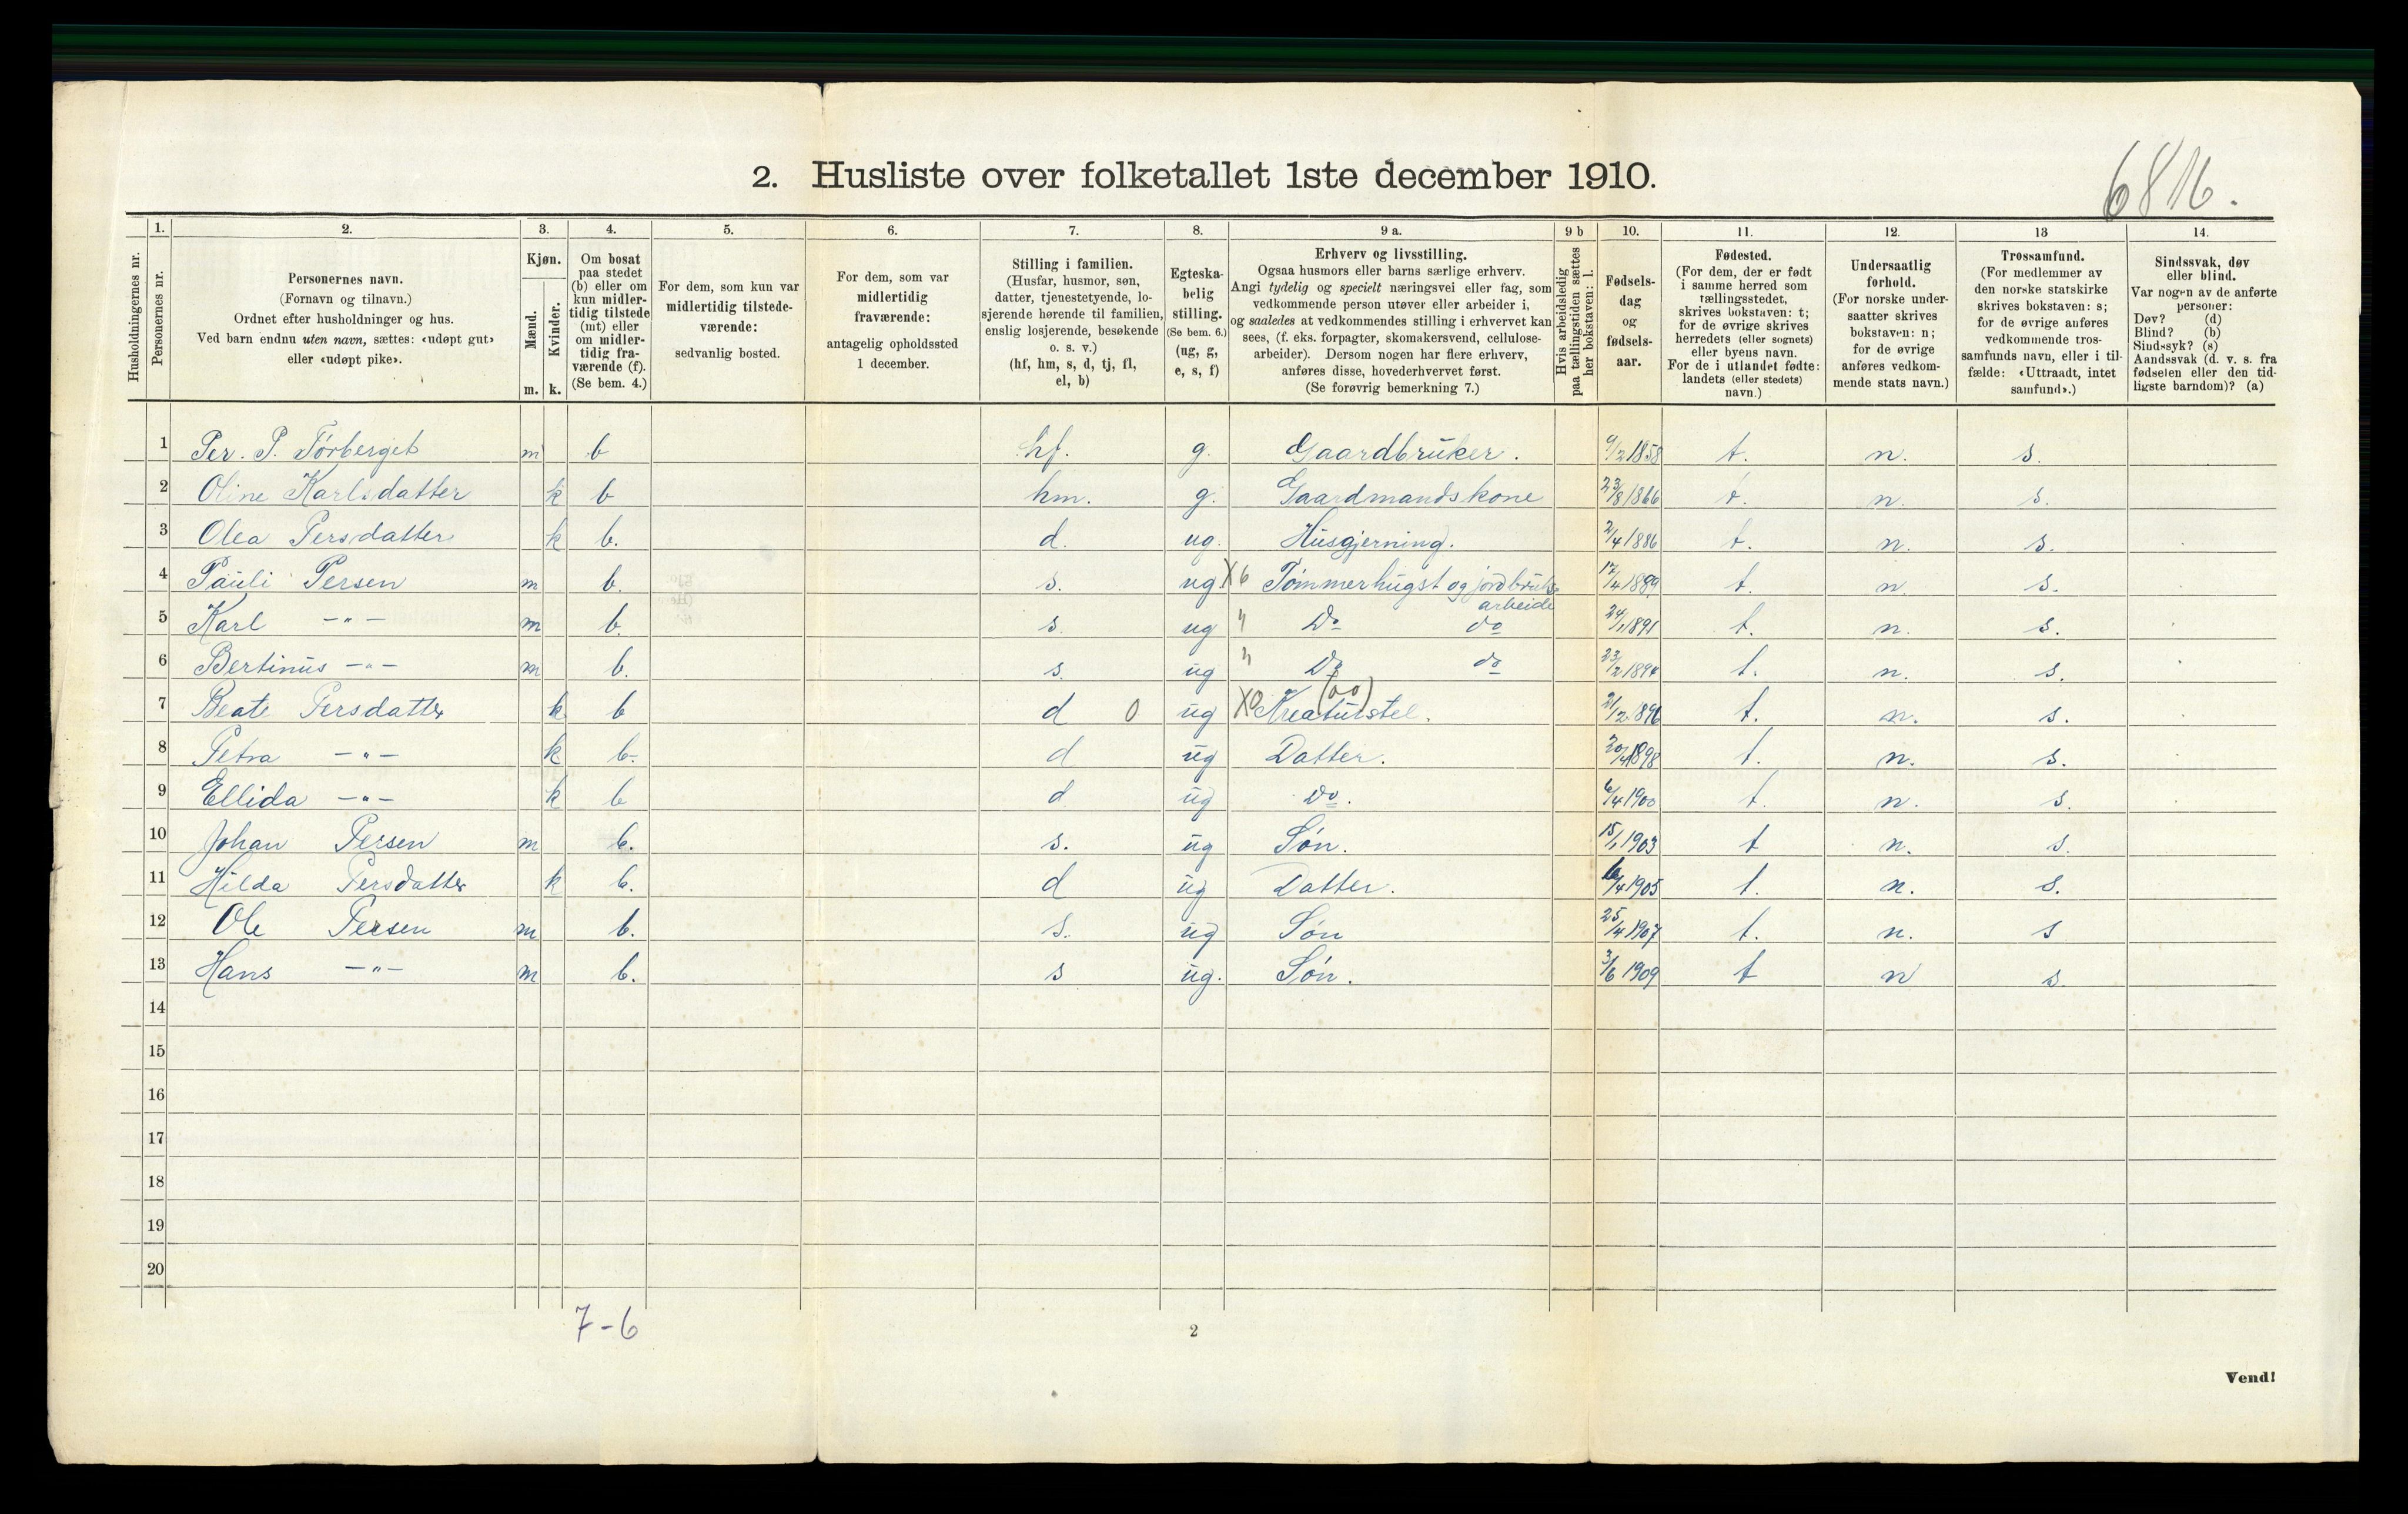 2. Husliste over folketallet 1ste december 1910.
6816.
Husholdningernes nr.
1. Personernes nr.
2. Personernes navn.
(Fornavn og tilnavn.)
Ordnet efter husholdninger og hus.
Ved barn endnu uten navn, sættes: «udøpt gut»
eller «udøpt pike».
3. Kjøn.
Mænd. m.
Kvinder. k.
4. Om bosat
paa stedet
(b) eller om
kun midler-
tidig tilstede
(mt) eller
om midler-
tidig fra-
værende (f).
(Se bem. 4.)
5. For dem, som kun var
midlertidig tilstede-
værende:
sedvanlig bosted.
6. For dem, som var
midlertidig
fraværende:
antagelig opholdssted
1 december.
7. Stilling i familien.
(Husfar, husmor, søn,
datter, tjenestetyende, lo-
sjerende hørende til familien,
enslig losjerende, besøkende
o. s. v.)
(hf, hm, s, d, tj, fl,
el, b)
8. Egteska-
belig
stilling.
(Se bem. 6.)
(ug, g,
e, s, f)
9 a. Erhverv og livsstilling.
Ogsaa husmors eller barns særlige erhverv.
Angi tydelig og specielt næringsvei eller fag, som
vedkommende person utøver eller arbeider i,
og saaledes at vedkommendes stilling i erhvervet kan
sees, (f. eks. forpagter, skomakersvend, cellulose-
arbeider). Dersom nogen har flere erhverv,
anføres disse, hovederhvervet først.
(Se forøvrig bemerkning 7.)
9 b Hvis arbeidsledig
paa tællingstiden sættes
her bokstaven: l.
10. Fødsels-
dag
og
fødsels-
aar.
11. Fødested.
(For dem, der er født
i samme herred som
tællingsstedet,
skrives bokstaven: t;
for de øvrige skrives
herredets (eller sognets)
eller byens navn.
For de i utlandet fødte:
landets (eller stedets)
navn.)
12. Undersaatlig
forhold.
(For norske under-
saatter skrives
bokstaven: n;
for de øvrige
anføres vedkom-
mende stats navn.)
13 Trossamfund.
(For medlemmer av
den norske statskirke
skrives bokstaven: s;
for de øvrige anføres
vedkommende tros-
samfunds navn, eller i til-
fælde: «Uttraadt, intet
samfund».)
14. Sindssvak, døv
eller blind.
Var nogen av de anførte
personer:
Døv? (d)
Blind? (b)
Sindssyk? (s)
Aandssvak (d. v. s. fra
fødselen eller den tid-
ligste barndom)? (a)
1 Per. P. Tørberget m b hf. g. Gaardbruker. 9/2 1858 t. n. s.
2 Oline Karlsdatter k b hm. g. Gaardmandskone 23/8 1866 t. n. s.
3 Olea Persdatter k b. d. ug. Husgjerning. 2/4 1886 t. n. s.
4 Pauli Persen m b. s. ug X6 Tømmerhugst og jordbruks- 17/4 1889 t. n. s.
arbeide
5 Karl -"- m b. s. ug " Do do 24/1 1891 t. n. s.
6 Bertinus -"- m b. s. ug " Do do 23/2 1894 t. n. s.
7 Beate Persdatter k b d 0 ug X0 Kreaturstel. (00) 21/2 1896 t. n. s.
8 Petra -"- k b. d ug Datter. 20/4 1898 t. n. s.
9 Ellida -"- k b d ug Do. 6/4 1900 t. n. s.
10 Johan Persen m b. s. ug Søn. 15/1 1903 t n. s.
11 Hilda Persdatter k b. d ug Datter. 6/4 1905 t. n. s.
12 Ole Persen m b. s. ug Søn 25/4 1907 t. n. s
13 Hans -"- m b. s ug. Søn. 3/6 1909 t n s
14
15
16
17
18
19
20
7-6
2
Vend!